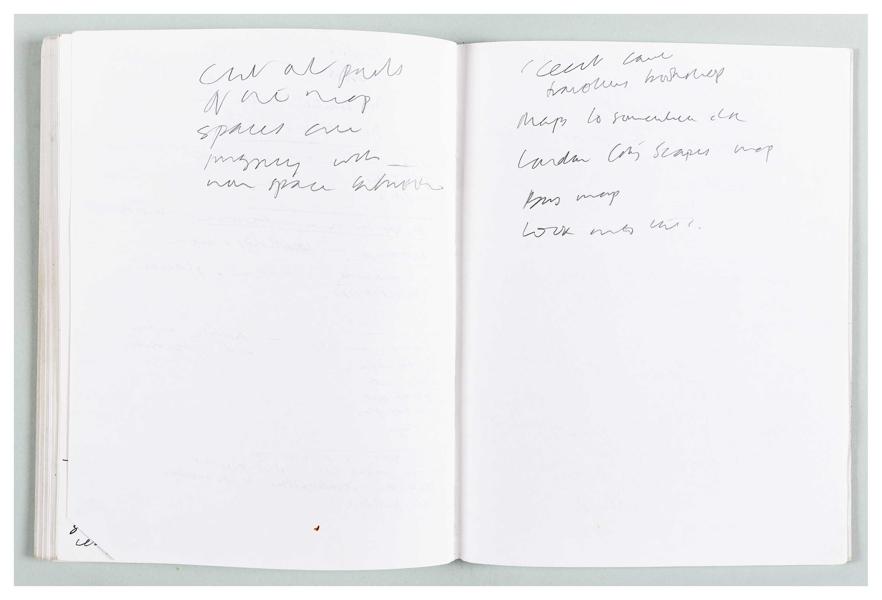 Cut out parts
of the map
spaces are
imagery with
non space between
Cecil Court
travellers bookshop
Maps to somewhere else
London City Scapes map
Bus map
Look into this.